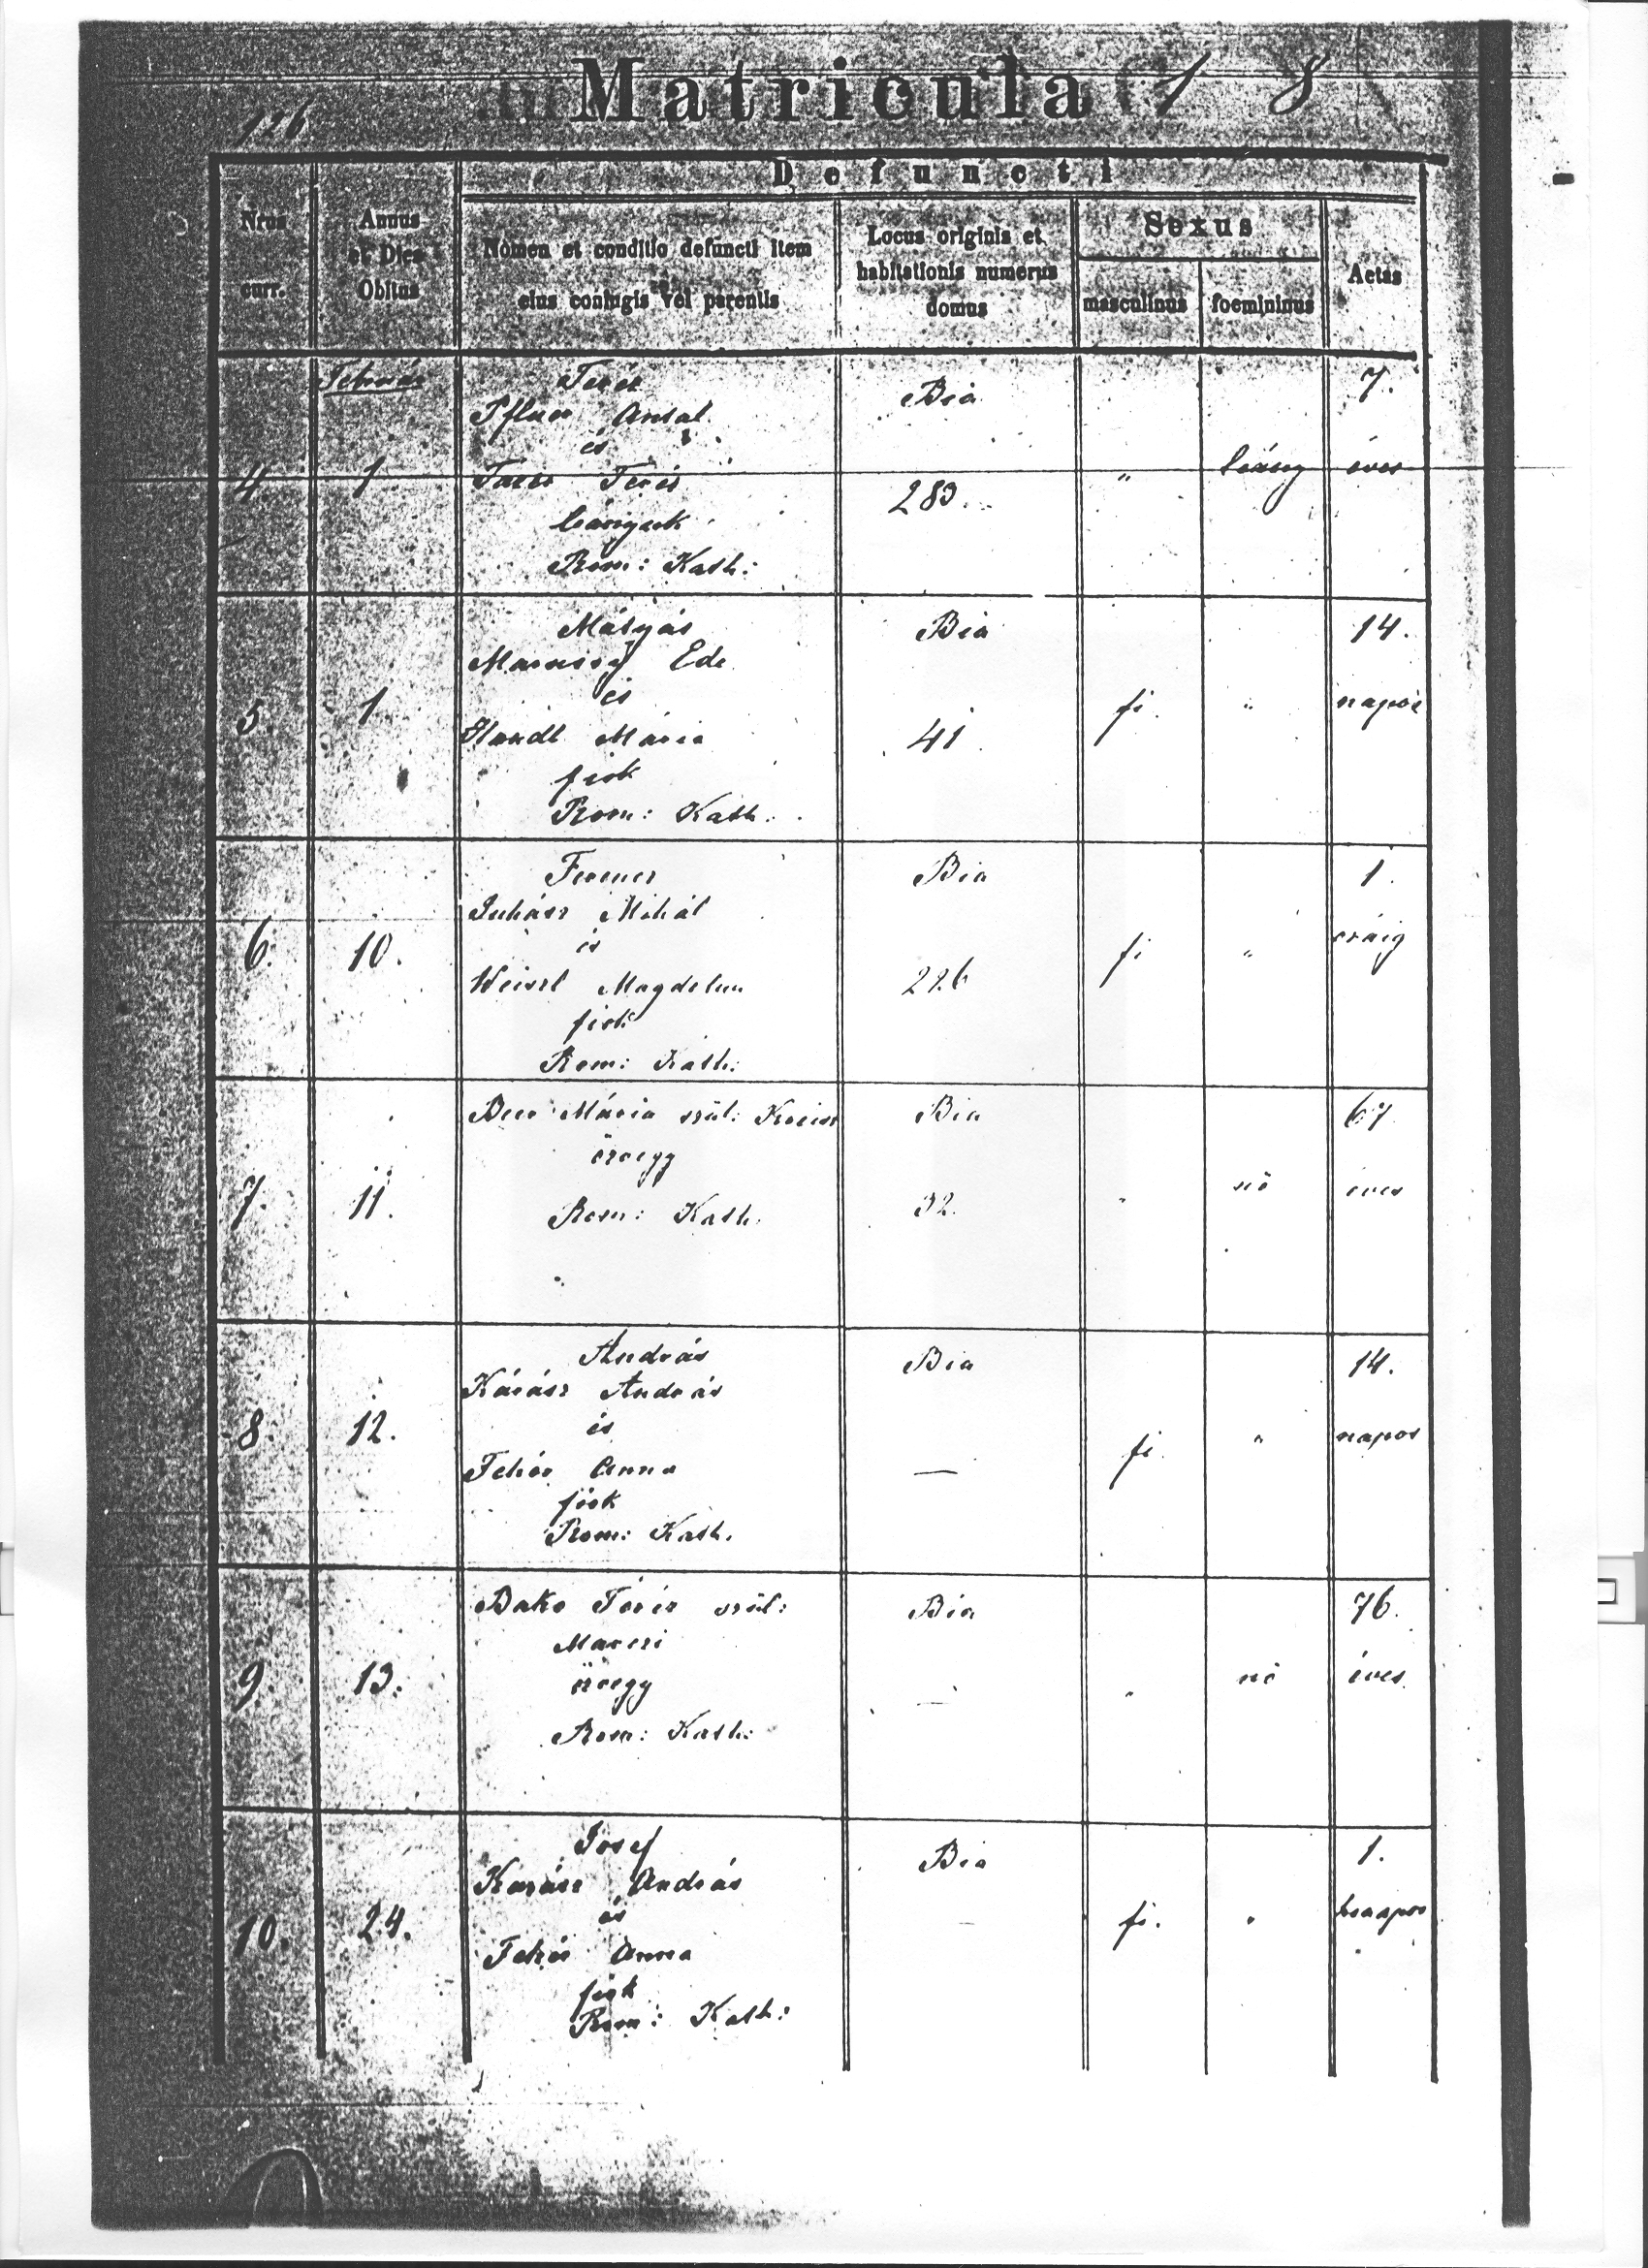 Matricula 1 8
126
Defuncti
Nrus curr.
Annus et Dies Obitus
Nomen et conditio defuncti item
eius coniugis vel parentis
Locus originis et
habitationis numerus
domus
Sexus
masculinus
foemininus
Aetas
Február
4. 1.
Teréz
Antal
és
Teréz
leányuk
Rom: Kath:
Bia
283.
"
leány
7.
éves
5. 1
Mátyás
Ede
és
Handl Mária
fiok
Rom: Kath:
Bia
41.
fi.
"
14.
napos
6. 10.
Ferencz
Juhász Mihál
és
Weiszl Magdelna
fiok
Rom: Kath:
Bia
226
fi
"
1.
óráig
7. 11.
Mária szül:
özvegy
Rom: Kath.
Bia
32.
"
nő
67
éves
8. 12.
András
Kárász András
és
Fehér Anna
fiok
Rom: Kath.
Bia
—
fi.
"
14.
napos
9. 13.
Bako Teréz szül:
Maroszi
özvegy
Rom: Kath:
Bia
—
"
nő
76.
éves
10. 24.
Josef
Karász András
és
Fehér Anna
fiok
Rom: Kath:
Bia
—
fi.
"
1.
hónapos